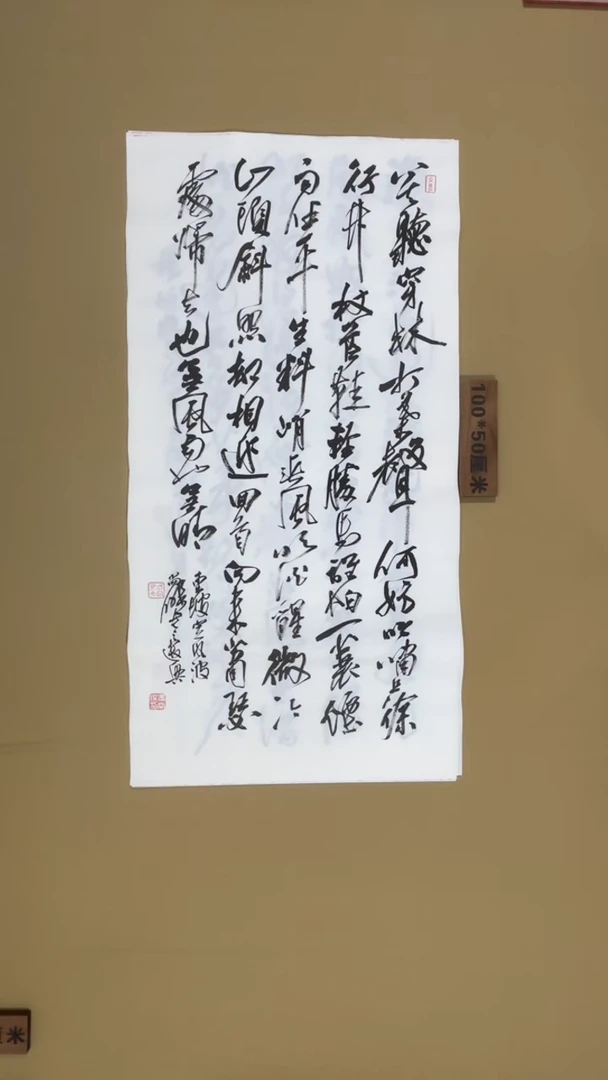 莫聽穿林打葉聲何妨吟嘯且徐
行竹杖芒鞋輕勝馬誰怕一蓑煙
雨任平生料峭春風吹酒醒微冷
山頭斜照却相迎回首向来蕭瑟
處歸去也無風雨也無晴
東坡定風波
100*50厘米
厘米